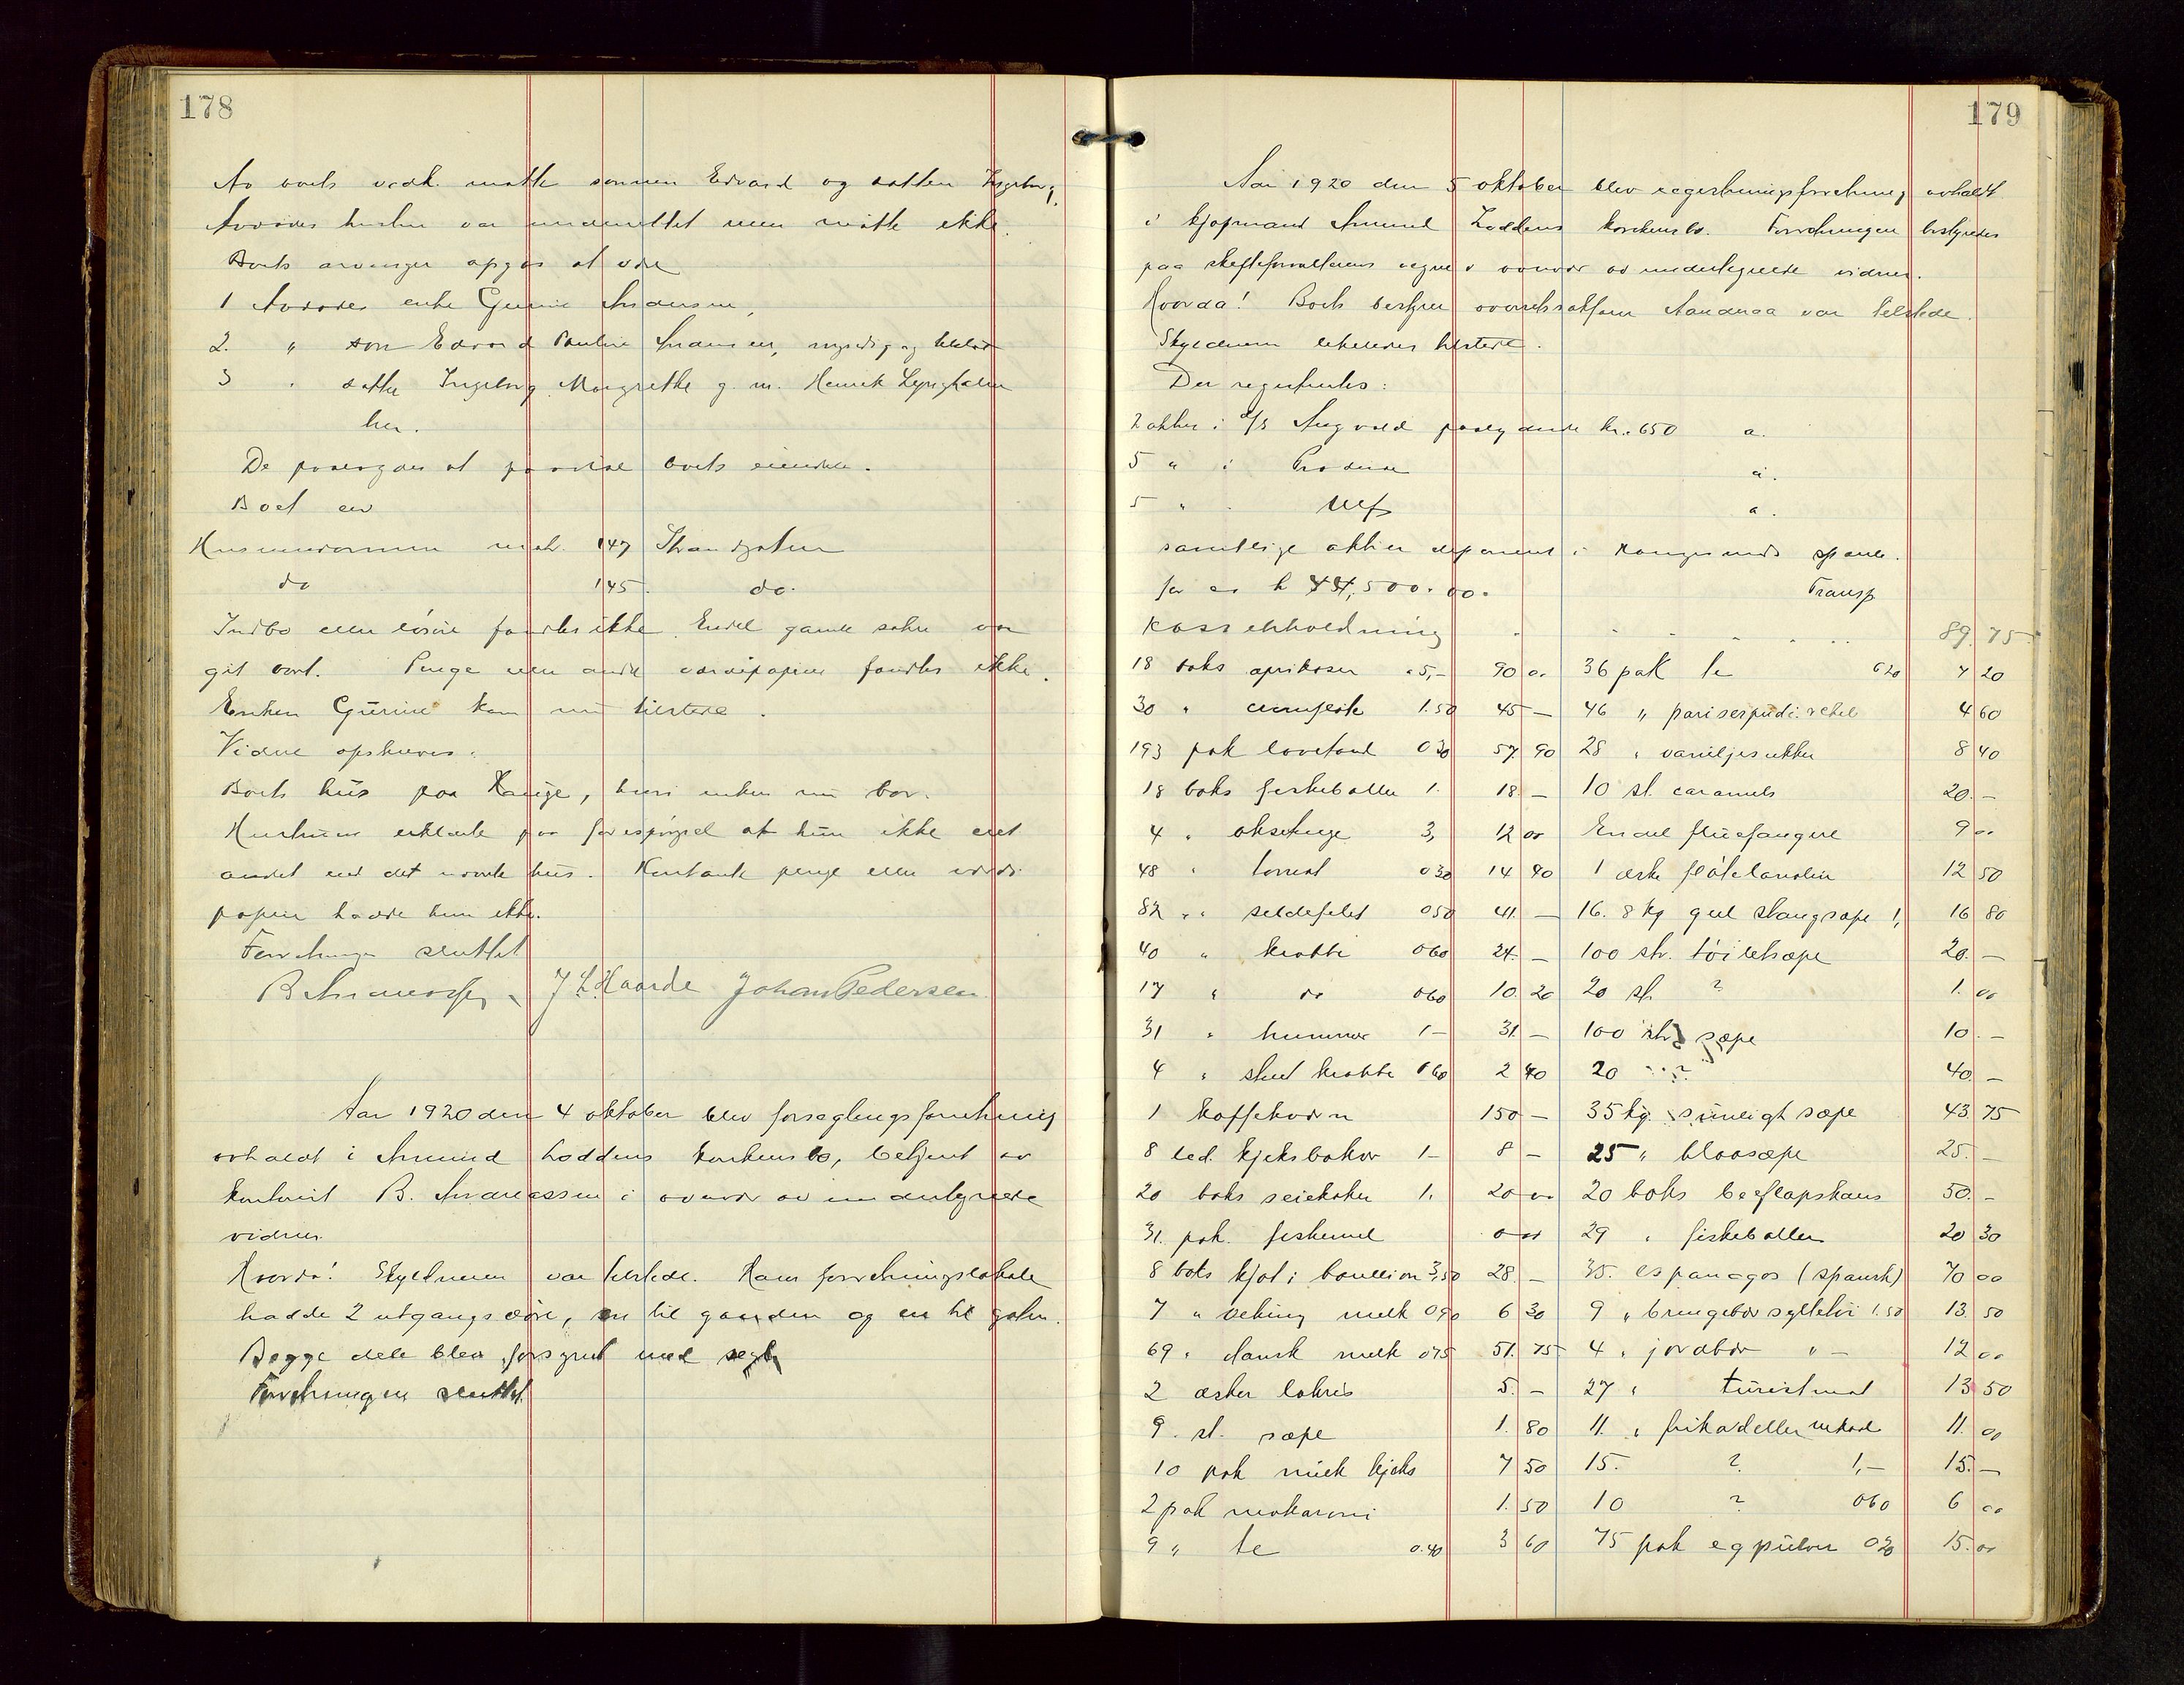 178
Av boets vedk. møtte sønnen Edvard og datten Ingeborg,
Avdødes hustru var underrettet men møtte ikke.
Boets arvinger opgaes at være
1 Avdødes enke Gurine Andersen,
2. " søn Edvard Pauline Andersen, myndig og tilsted
3 " datter Ingeborg Margrethe g. m. Henrik Lyngholm
her.
De paalægges at paavise boets eiendele.
Boet eier
Huseiendommen matr. 147 Strandgaten
do 145. do.
Indbo eller løsøre fandtes ikke. Endel gamle saker var
git bort. Penge eller andre værdipapirer fandtes ikke.
Enken Gurine kom nu tilstede.
Videre opskreves:
Boets hus paa Hauge, hvori enken nu bor.
Hustruen erklærte paa forespørgsel at hun ikke eiet
andet end det nævnte hus. Kontante penge eller værdi
papirer hadde hun ikke.
Forretningen sluttet
B Andreassen J L Haarde Johan Pedersen.
Aar 1920 den 4 oktober blev forseglingsforretning
avholdt i Amund Loddens konkursbo, betjent av
kontorist B. Andreassen i overvær av undertegnede
vidner.
Hvorda! Skyldneren var tilstede. Hans forretningslokale
hadde 2 utgangsdøre, en til gaarden og en til gaten.
Begge dele blev forsynet med segl
Forretningen sluttet.
179
Aar 1920 den 5 oktober blev registreringsforretning avholdt
i kjøpmand Amund Loddens konkursbo. Forretningen bestyredes
paa skifteforvalterens vegne i overvær av undertegnede vidner.
Hvorda! Boets bestyrer overretssakfører Aanderaa var tilstede.
Skyldneren likeledes tilstede.
Der registrertes:
2 aktier i A/S Augvald paalydende kr. 650 a.
5 " i Brodrene a.
5 " " Ulf a.
samtlige aktier deponert i Haugesunds spareb.
for ca k 44,500.00. Transp
Kassebeholdning 89.75
18 boks aprikoser a 5,- 90 00
30 " 1.50 45 —
193 pak 0 30 57. 90
18 boks fiskeboller 1. 18. —
4 " oksetunge 3, 12 00
48 " torrost 0 30 14 40
82 " " sildefilet 0 50 41. —
40 " krabbe 0 60 24. —
17 " do 0 60 10. 20
31 " hummer 1 – 31. —
4 " skul krabbe 0 60 2 40
1 kaffekværn 150 —
8 led. kjeksbokser 1 – 8 —
20 boks seiekaker 1. 20 00
31. pak. fiskemel
8 boks kjøt i boullion 3,50 28. —
7 " viking melk 0 90 6 30
69 " dansk melk 0 75 51. 75
2 æsker lakris 5. —
9. st. sæpe 1. 80
10 pak milk kjeks 7 50
2 pak makaroni 1. 50
9 " te 0.40 3 60
36 pak te 0 20 7 20
46 " pariserpudi. 4 60
28 " vaniljesukker 8 40
10 st. caramels 20. —
Endel fluefangere 9 00
1 æske fløtelanolin 12 50
16. 8 kg gul stangsæpe 1, 16 80
100 stk. toiletsæpe 20. —
20 st. ? 1. 00
100 stk sæpe 10. —
20 " " ? 40. —
35 kg. sunligth sæpe 43. 75
25 " blaasæpe 25. —
20 boks beeflapskaus 50. —
29 " fiskeboller 20 30
35. espanagos (spansk) 70 00
9 " bringebær syltetøi 1.50 13. 50
4 " jordbær " – 12 00
27 " turistmat 13 50
11. " frikadeller 11. 00
15. ? 1,– 15. —
10 ? 0 60 6 00
75 pak eggpulver 0 20 15. 00